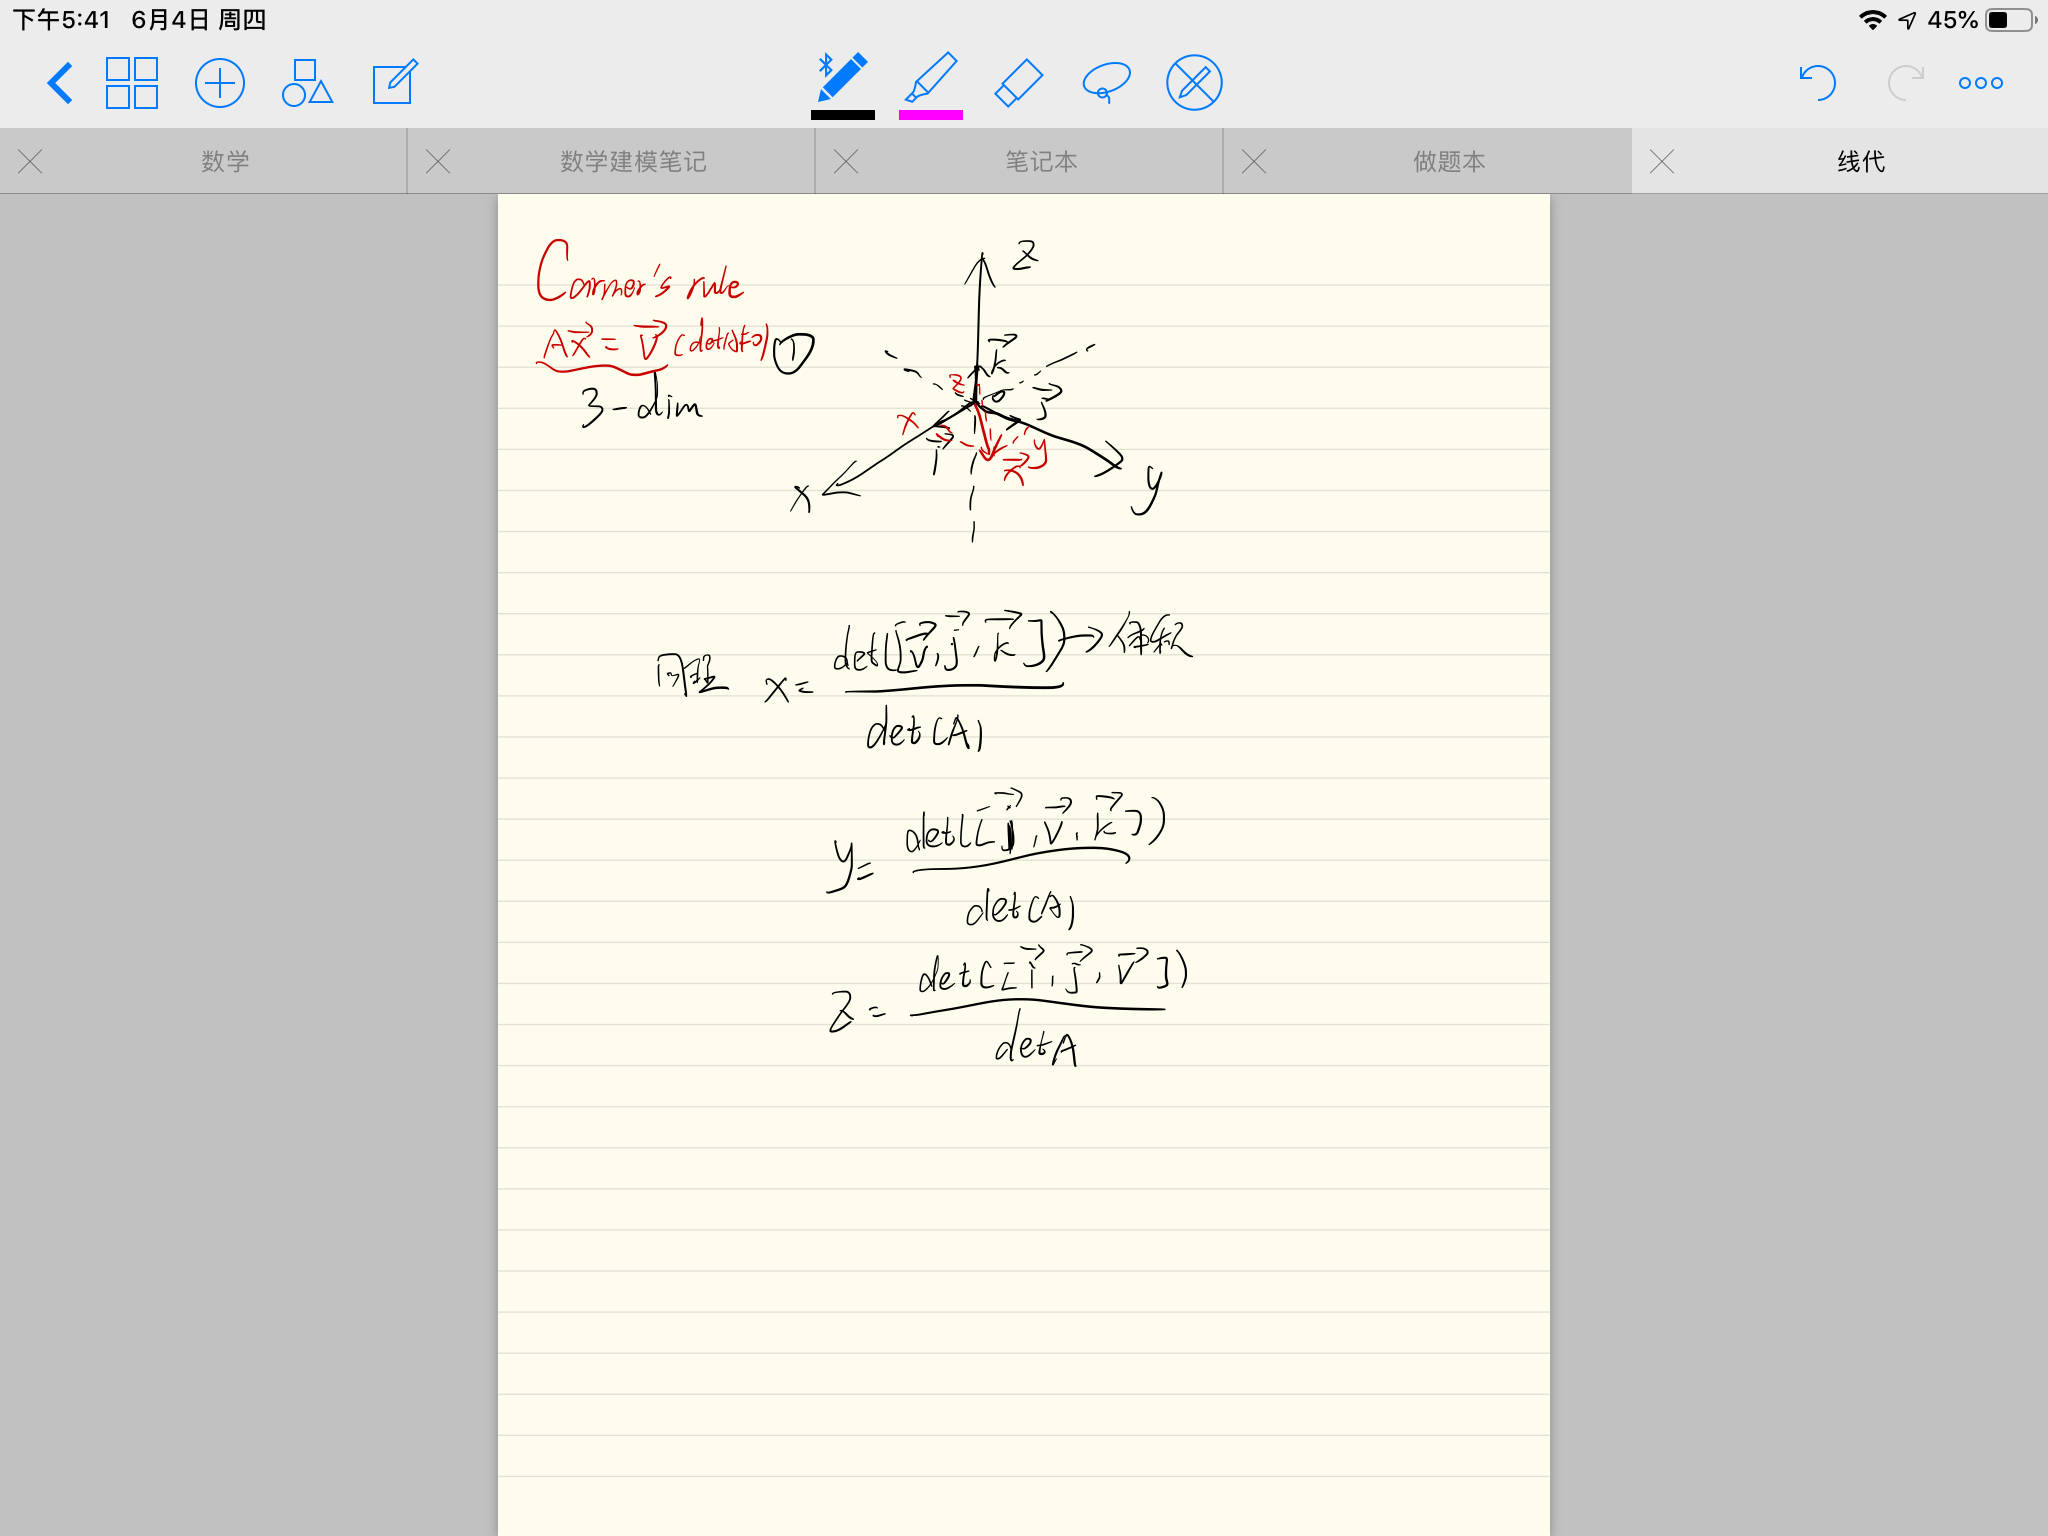 下午5:41 6月4日 周四 45%
数学 数学建模笔记 笔记本 做题本 线代
Carmer's rule
Ax⃗ = v⃗ (det(A)≠0) ①
3-dim
z
k⃗
z o j⃗
x i⃗ y
x⃗
x y
同理 x = det([v⃗, j⃗, k⃗]) → 体积
det(A)
y = det([i⃗, v⃗, k⃗])
det(A)
z = det([i⃗, j⃗, v⃗])
det A